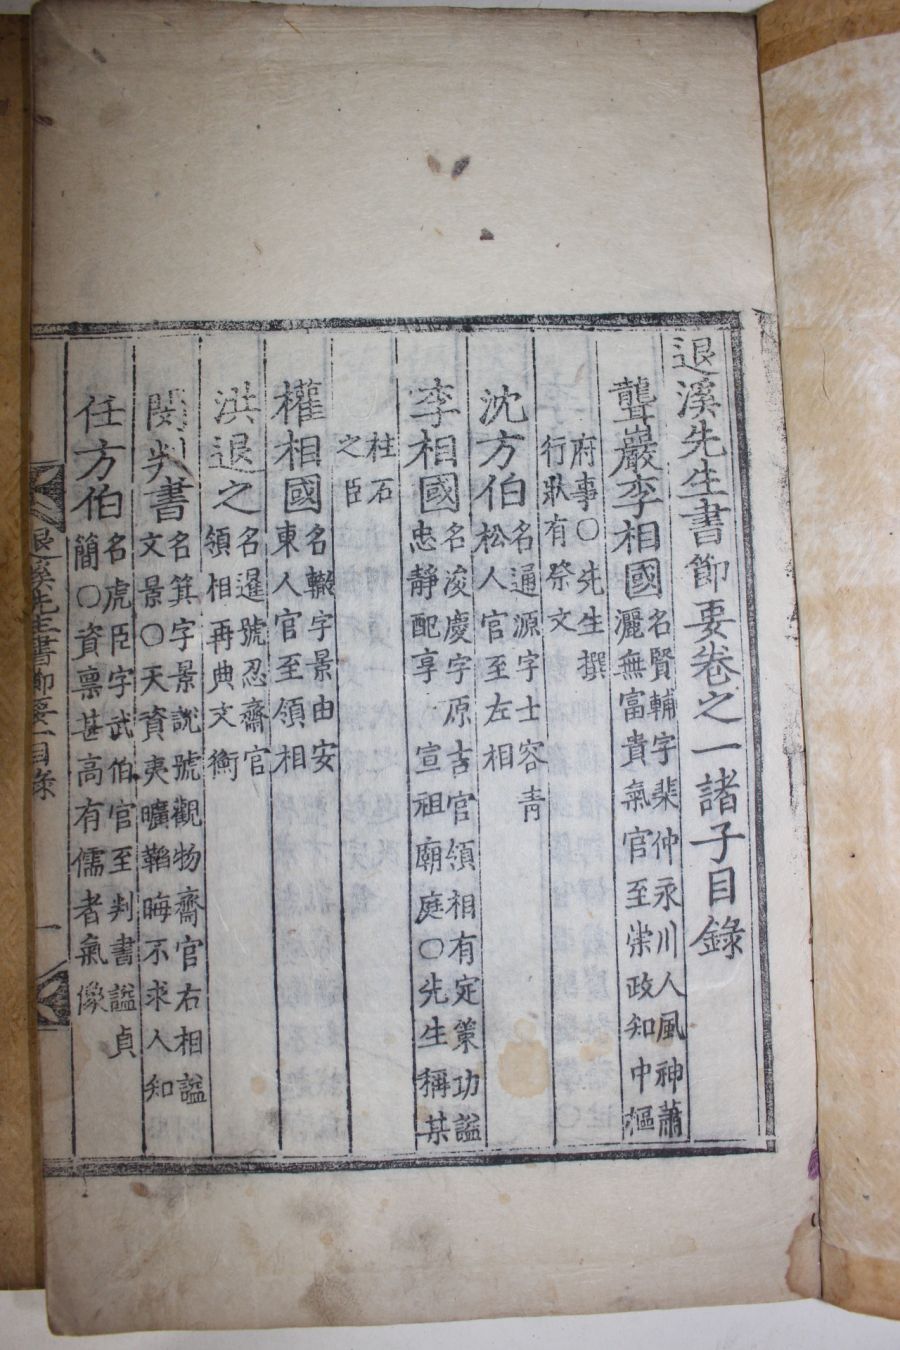 退溪先生書節要卷之一諸子目錄
聾巖李相國
名賢輔字棐仲永川人風神蕭
灑無富貴氣官至崇政知中樞
府事〇先生撰
行狀有祭文
沈方伯
名通源字士容青
松人官至左相
李相國
名浚慶字原吉官領相有定策功謚
忠靜配享宣祖廟庭〇先生稱某
柱石
之臣
權相國
名轍字景由安
東人官至領相
洪退之
名暹號忍齋官
領相再典文衡
閔判書
名箕字景說號觀物齋官右相謚
文景〇天資夷曠韜晦不求人知
任方伯
名虎臣字武伯官至判書謚貞
簡〇資稟甚高有儒者氣像
退溪先生書節要一目錄
一